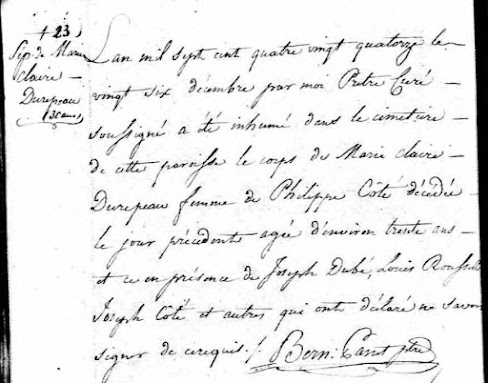 + 23
Sep. de Marie
claire —
Durepeau
30 ans
L'an mil sept cent quatre vingt quatorze le —
vingt six décembre par moi Prêtre Curé —
soussigné a été inhumé dans le cimetière —
de cette paroisse le corps de Marie claire —
Durepeau femme de Philippe Côté décédée —
le jour précédent agée d'environ trente ans —
et ce en présence de Joseph Dubé, Louis
Joseph Côté et autres qui ont déclaré ne savoir
signer de ce requis ./. Bern. ptre